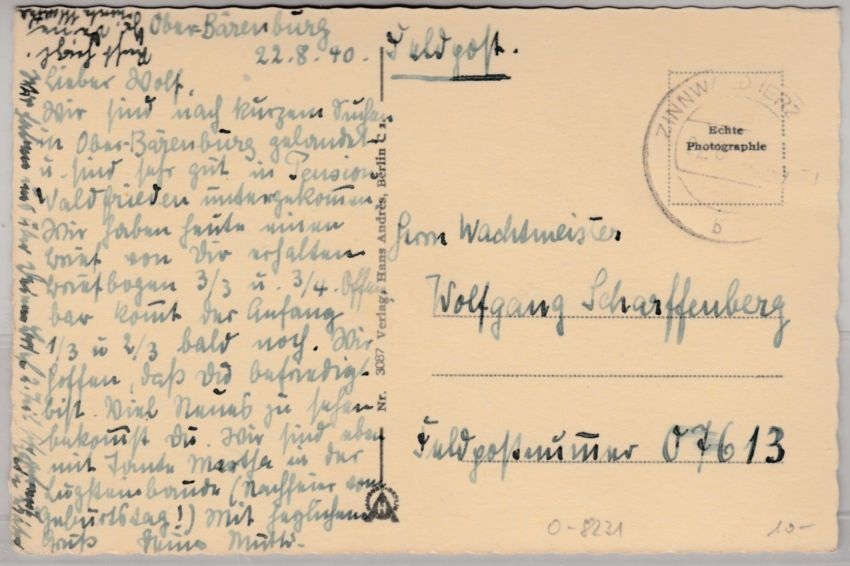 Ober-Bärenburg
22.8.40.
Lieber Wolf,
Wir sind nach kurzem Suchen
in Ober-Bärenburg gelandet
u. sind sehr gut in Pension
Waldfrieden untergekommen.
Wir haben heute einen
Brief von Dir erhalten
Briefbogen 3/3 u. 3/4. Offen
bar kommt der Anfang
1/3 u 2/3 bald noch. Wir
hoffen, daß Du befriedigt
bist. Viel Neues zu sehen
bekommst Du. Wir sind eben
mit Tante Martha in der
Lugsteinbaude (Nachfeier vom
Geburtstag!) Mit herzlichem
Gruß Deine Mutti.
Nr. 3087 Verlag: Hans Andres, Berlin C 2,
Feldpost.
ZINNW
ERZ
b
Echte
Photographie
Herrn Wachtmeister
Wolfgang Scharffenberg
Feldpostnummer 07613
O-8231
10-